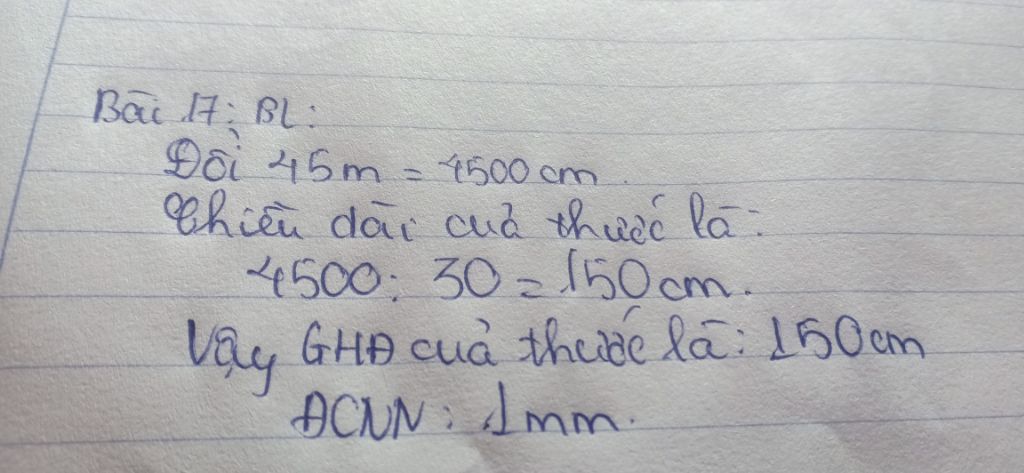 Bài 17: BL:
Đổi 45m = 4500cm.
Chiều dài của thước là:
4500: 30 = 150cm.
Vậy GHĐ của thước là: 150cm
ĐCNN: 1mm.